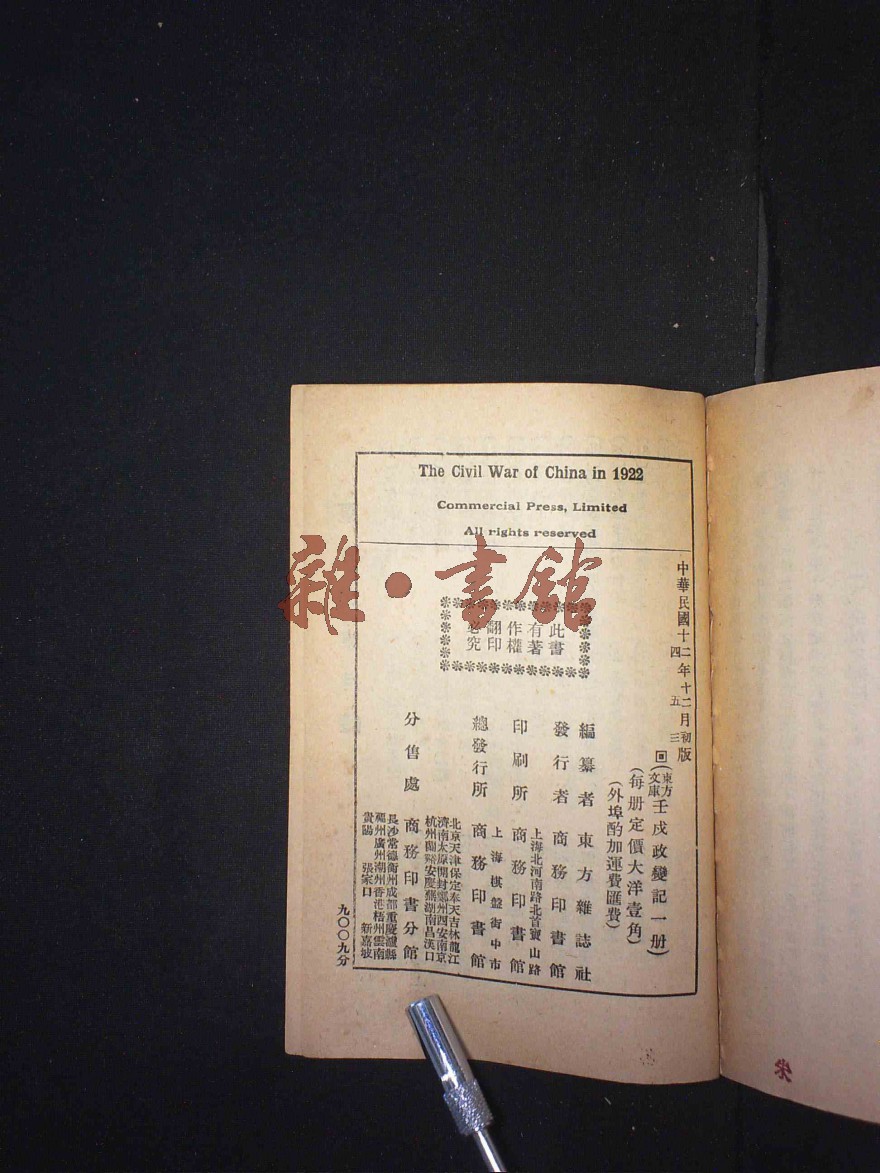 The Civil War of China in 1922
Commercial Press, Limited
All rights reserved
雜·書館
此書
有著
作權
翻印
必究
中華民國十二年十二月初版
四 五 三
回(東方文庫)壬戌政變記一册)
(每册定價大洋壹角)
(外埠酌加運費匯費)
編纂者 東方雜誌社
發行者 商務印書館
上海北河南路北首寶山路
印刷所 商務印書館
上海棋盤街中市
總發行所 商務印書館
北京天津保定奉天吉林龍江
濟南太原開封鄭州西安南京
杭州蘭谿安慶蕪湖南昌漢口
分售處 商務印書分館
長沙常德衡州成都重慶瀘縣
福州廣州潮州香港梧州雲南
貴陽 張家口 新嘉坡
九〇〇九分